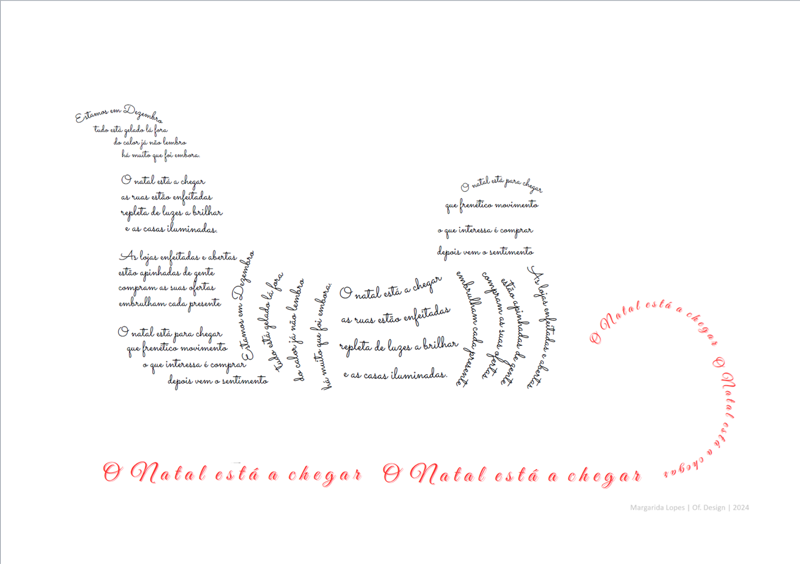 Estamos em Dezembro
tudo está gelado lá fora
do calor já não lembro
há muito que foi embora.
O natal está a chegar
as ruas estão enfeitadas
repleta de luzes a brilhar
e as casas iluminadas.
As lojas enfeitadas e abertas
estão apinhadas de gente
compram as suas ofertas
embrulham cada presente
O natal está para chegar
que frenético movimento
o que interessa é comprar
depois vem o sentimento
Estamos em Dezembro
tudo está gelado lá fora
do calor já não lembro
há muito que foi embora.
O natal está a chegar
as ruas estão enfeitadas
repleta de luzes a brilhar
e as casas iluminadas.
O natal está para chegar
que frenético movimento
o que interessa é comprar
depois vem o sentimento
As lojas enfeitadas e abertas
estão apinhadas de gente
compram as suas ofertas
embrulham cada presente
O Natal está a chegar O Natal está a chegar
O Natal está a chegar O Natal está a chegar
Margarida Lopes | Of. Design | 2024